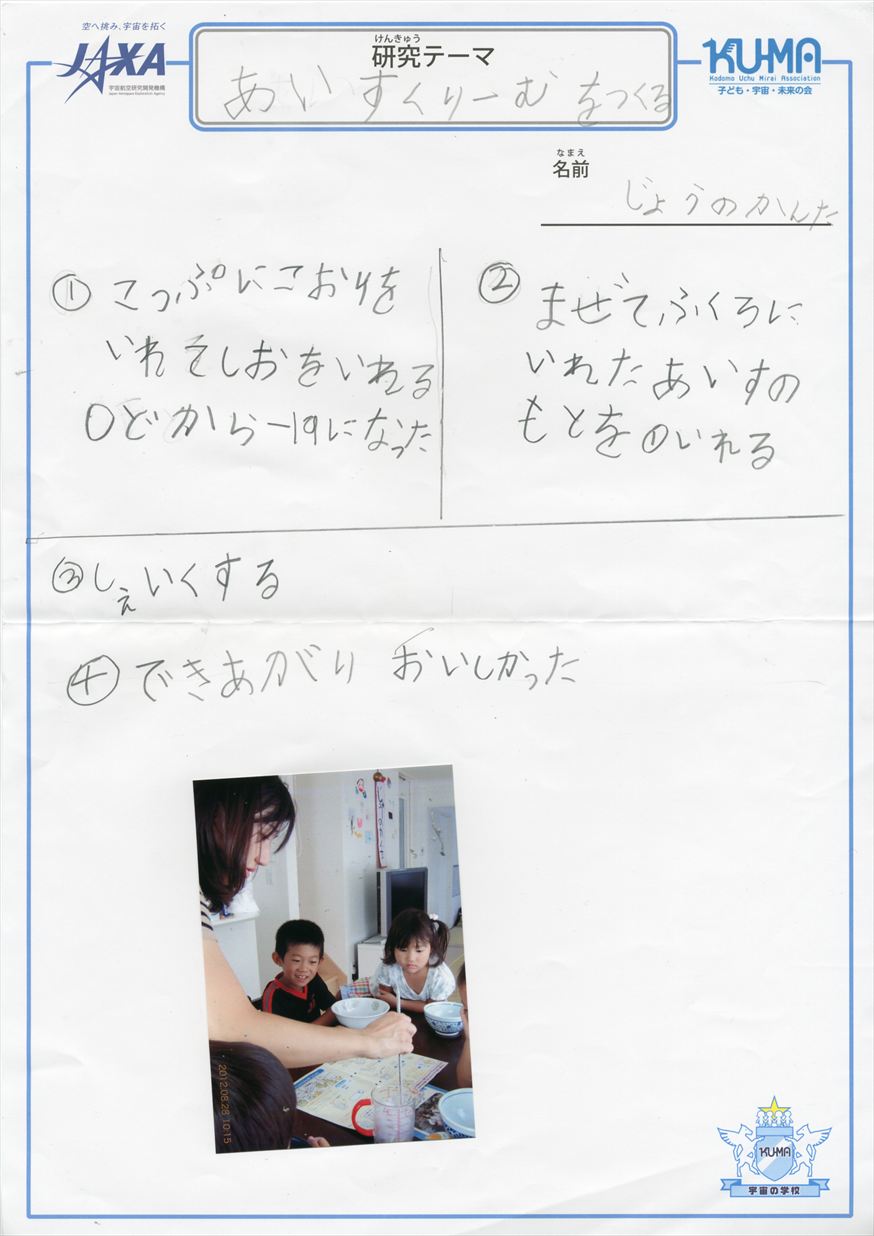 空へ挑み、宇宙を拓く
JAXA
宇宙航空研究開発機構
Japan Aerospace Exploration Agency
けんきゅう
研究テーマ
あいすくりーむ をつくる
KU-MA
Kodomo Uchu Mirai Association
子ども・宇宙・未来の会
なまえ
名前
じょうのかんた
① こっぷにこおりを
いれそしおをいれる
0どから-19になった
② まぜてふくろに
いれたあいすの
もとを①いれる
③しぇいくする
④できあがり おいしかった
じょうのかんた
2012.08.28 10:15
KU-MA
宇宙の学校